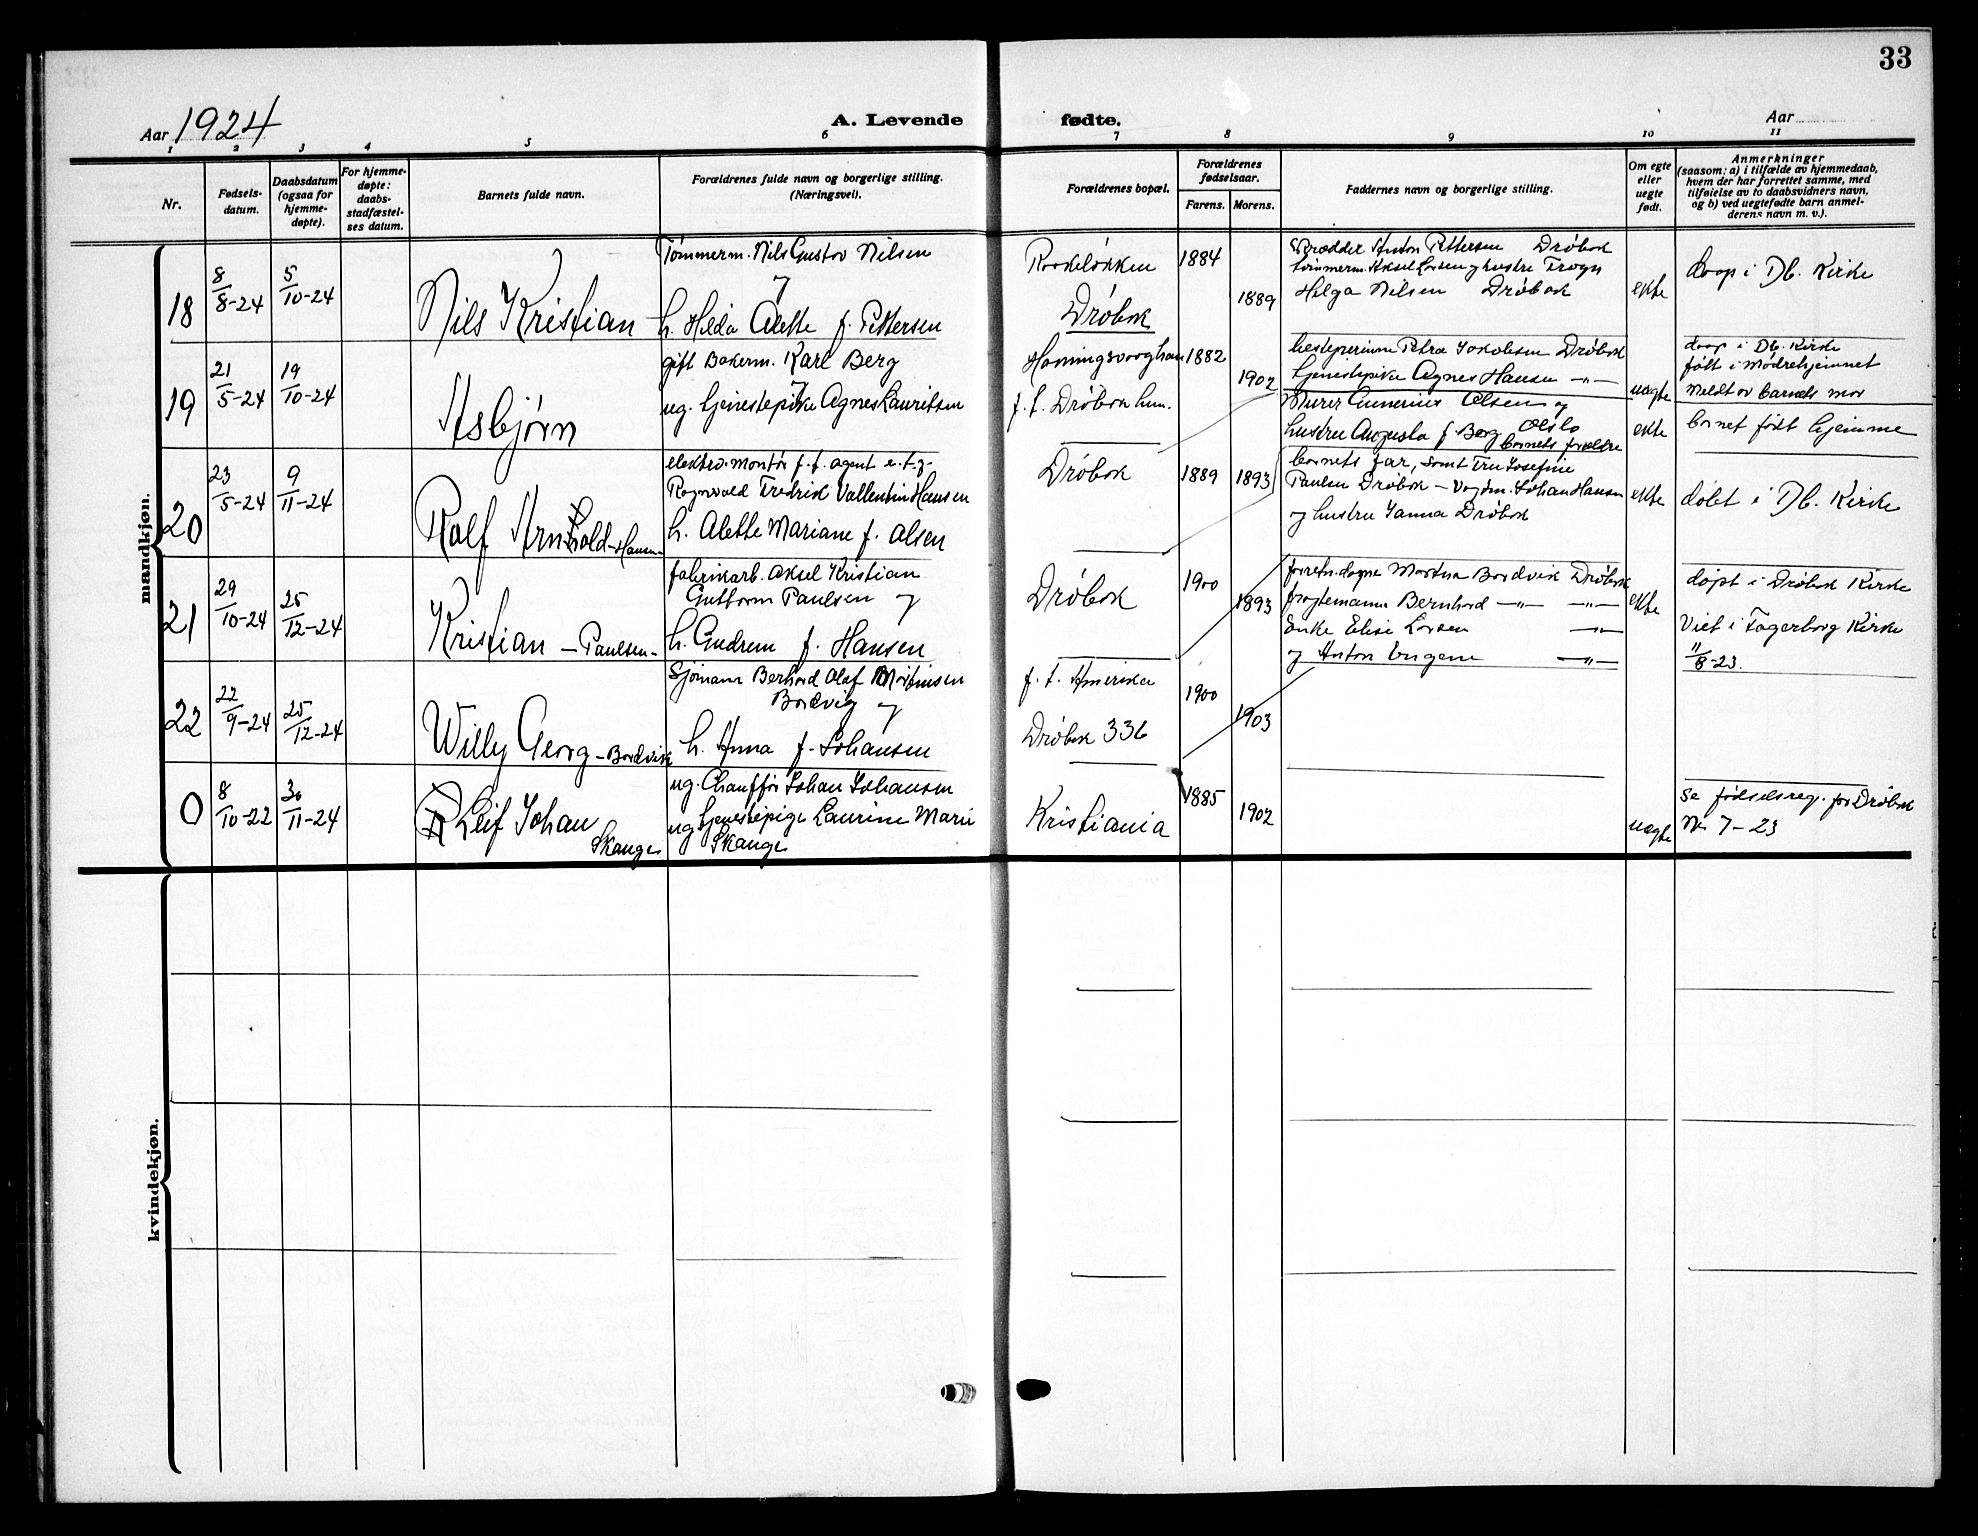 33
Aar 1924
A. Levende fødte.
Aar
1 2 3 4 5 6 7 8 9 10 11
Nr.
Fødsels-
datum.
Daabsdatum
(ogsaa for
hjemme-
døpte).
For hjemme-
døpte:
daabs-
stadfæstel-
ses datum.
Barnets fulde navn.
Forældrenes fulde navn og borgerlige stilling.
(Næringsvei).
Forældrenes bopæl.
Forældrenes
fødselsaar.
Farens. Morens.
Faddernes navn og borgerlige stilling.
Om egte
eller
uegte
født.
Anmerkninger
(saasom: a) i tilfælde av hjemmedaab,
hvem der har forrettet samme, med
tilføielse av to daabsvidners navn,
og b) ved uegtefødte barn anmel-
derens navn m. v.).
mandkjøn.
18
8/8-24
5/10-24
Nils Kristian
Tømmerm. Nils Gustav Nilsen
og
h. Hilda Alette f. Pettersen
Drøbak
1884
1889
Anton Pettersen Drøbak
tømmerm. Aksel Larsen og hustru Frogn
Helga Nilsen Drøbak
ekte
daap i Db. Kirke
19
21/5-24
19/10-24
Asbjørn
gift Bakerm. Karl Berg
og
ug. tjenestepike Agnes Lauritsen
f. t. Drøbak
1882
1902
Petra Jakobsen Drøbak
tjenestepike Agnes Hansen -"-
uegte
daap i Db. Kirke
født i Mødrehjemmet
Meldt av barnets mor
20
23/5-24
9/11-24
Ralf Arnhold - Hansen
elektro. montør f. t. agent e. t. z.
Ragnvald Fredrik Vallentin Hansen
h. Alette Mariane f. Olsen
Drøbak
1889
1893
Murer Gunerius Olsen og
hustru Augusta f Berg Oslo
barnets forældre
barnets far, samt Fru Josefine
Paulsen Drøbak - Johan Hansen
og hustru Janna Drøbak
ekte
ekte
barnet født hjemme
døbt i Db. Kirke
21
29/10-24
25/12-24
Kristian - Paulsen -
fabrikarb. Aksel Kristian
Guttorm Paulsen og
h. Gudrun f. Hansen
Drøbak
1900
1893
Martha Bordvik Drøbak
Bernhard -"- -"-
Enke Elise Larsen -"-
og Anton Eugene -"-
ekte
døpt i Drøbak Kirke
Viet i Fagerborg Kirke
11/8-23.
22
22/9-24
25/12-24
Willy Georg - Bordvik
Sjømann Berhard Olaf Martinsen
Bordvig og
h. Anna f. Johansen
f. t. Amerika
Drøbak 336
1900
1903
0
8/10-22
30/11-24
Leif Johan
Skauge
ug. Chauffør Johan Johansen
ug tjenestepige Laurine Marie
Skauge
Kristiania
1885
1902
uegte
Se fødselsreg. for Drøbak
No 7-23
kvindekjøn.